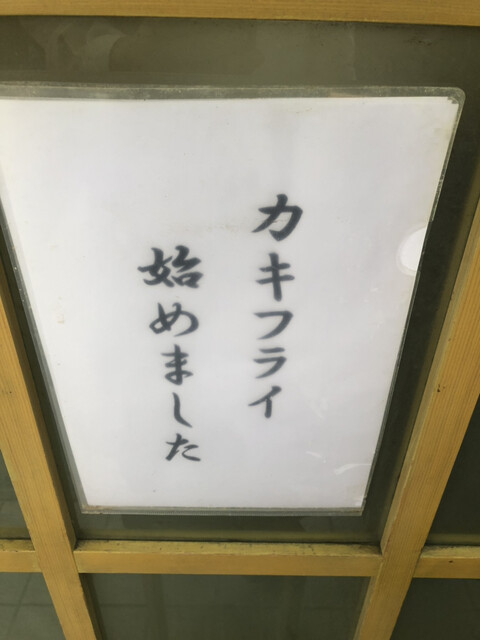 カキフライ
始めました